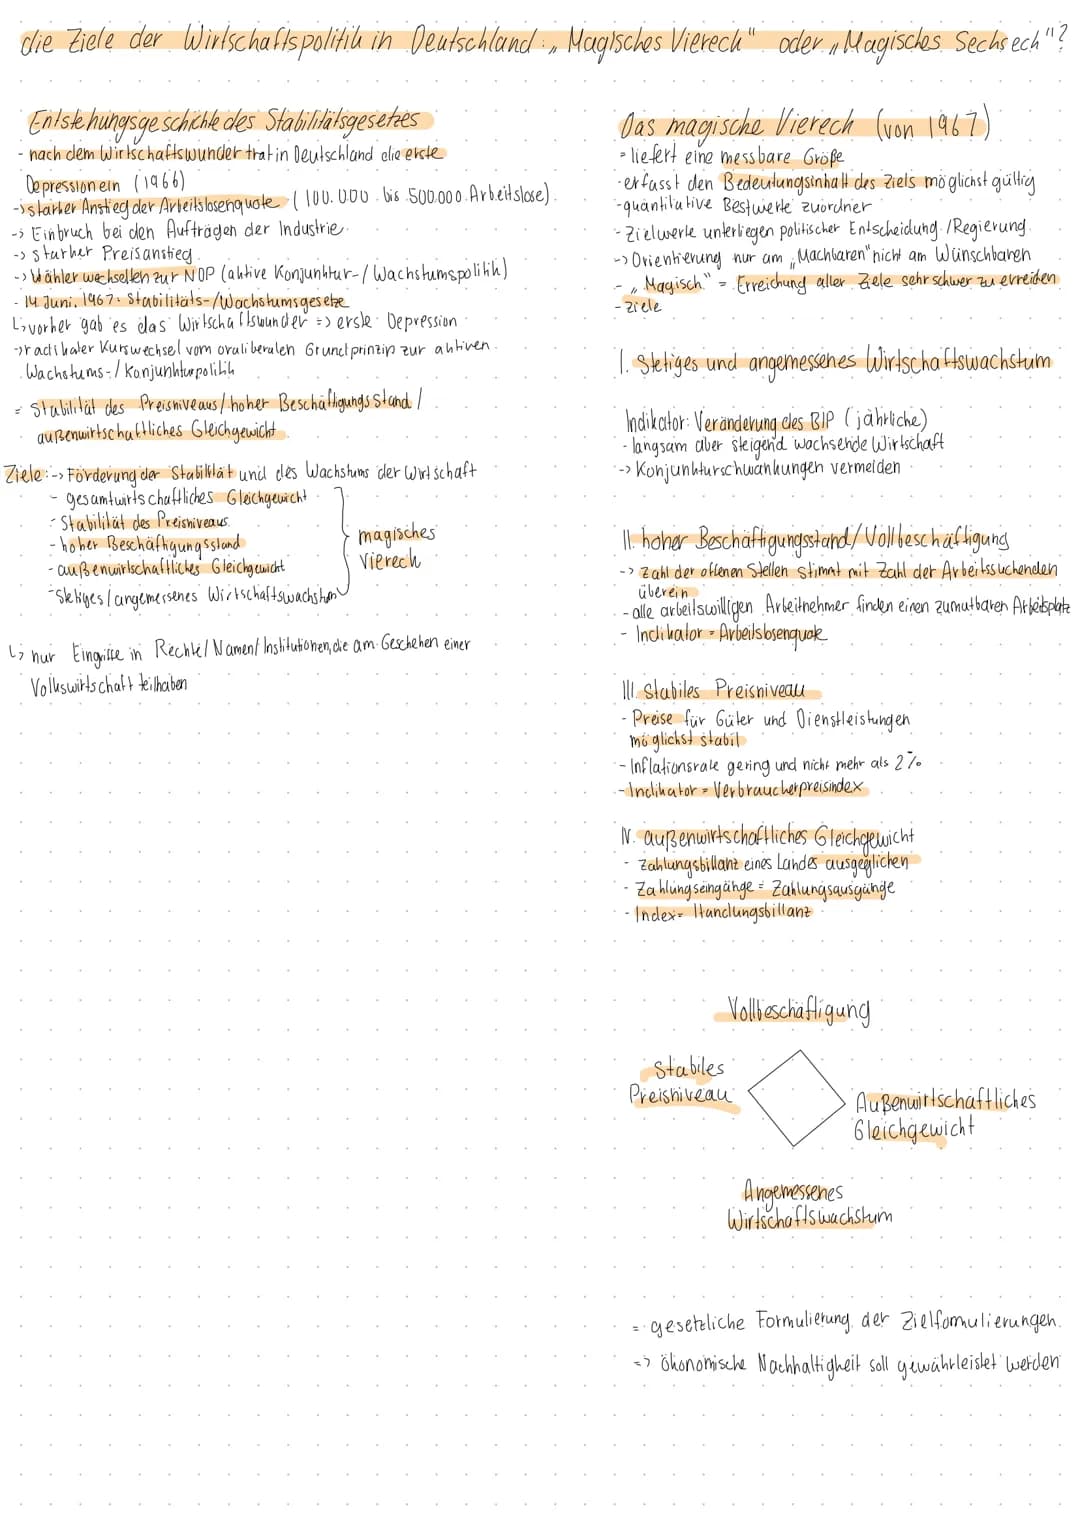 die Ziele der Wirtschaftspolitik in Deutschland: „Magisches Viereck" oder „Magisches Sechseck"?
Entstehungsgeschichte des Stabilitätsgesetzes
- nach dem Wirtschaftswunder trat in Deutschland die erste
Depression ein (1966)
-> starker Anstieg der Arbeitslosenquote (100.000 bis 500.000 Arbeitslose)
-> Einbruch bei den Aufträgen der Industrie
-> starker Preisanstieg
-> Wähler wechselten zur NDP (aktive Konjunktur-/Wachstumspolitik)
- 14 Juni, 1967: Stabilitäts-/Wachstumsgesetze
↳ vorher gab es das Wirtschaftswunder => erste Depression
-> radikaler Kurswechsel vom oraliberalen Grundprinzip zur aktiven
Wachstums-/Konjunkturpolitik
= Stabilität des Preisniveaus/hoher Beschäftigungsstand/
außenwirtschaftliches Gleichgewicht
Ziele: -> Förderung der Stabilität und des Wachstums der Wirtschaft
- gesamtwirtschaftliches Gleichgewicht
- Stabilität des Preisniveaus
- hoher Beschäftigungsstand
- außenwirtschaftliches Gleichgewicht
- Stetiges/angemessenes Wirtschaftswachstum
magisches
Viereck
↳ nur Eingriffe in Rechte/Namen/Institutionen, die am Geschehen einer
Volkswirtschaft teilhaben
Das magische Viereck (von 1967)
- liefert eine messbare Größe
- erfasst den Bedeutungsinhalt des Ziels möglichst gültig
- quantitative Bestwerte zuordner
- Zielwerte unterliegen politischer Entscheidung /Regierung
-> Orientierung nur am „Machbaren" nicht am Wünschbaren
- „Magisch" = Erreichung aller Ziele sehr schwer zu erreichen
- Ziele
I. Stetiges und angemessenes Wirtschaftswachstum
Indikator: Veränderung des BIP (jährliche)
- langsam aber steigend wachsende Wirtschaft
-> Konjunkturschwankungen vermeiden
II. hoher Beschäftigungsstand/Vollbeschäftigung
-> Zahl der offenen Stellen stimmt mit Zahl der Arbeitssuchenden
überein
- alle arbeitswilligen Arbeitnehmer finden einen zumutbaren Arbeitsplatz
- Indikator = Arbeitslosenquote
III. Stabiles Preisniveau
- Preise für Güter und Dienstleistungen
möglichst stabil
- Inflationsrate gering und nicht mehr als 2%
- Indikator = Verbraucherpreisindex
IV. außenwirtschaftliches Gleichgewicht
- Zahlungsbillanz eines Landes ausgeglichen
- Zahlungseingänge = Zahlungsausgänge
- Index = Handlungsbillanz
Vollbeschäftigung
Stabiles
Preisniveau
Außenwirtschaftliches
Gleichgewicht
Angemessenes
Wirtschaftswachstum
= gesetzliche Formulierung der Zielformulierungen
=> ökonomische Nachhaltigkeit soll gewährleistet werden